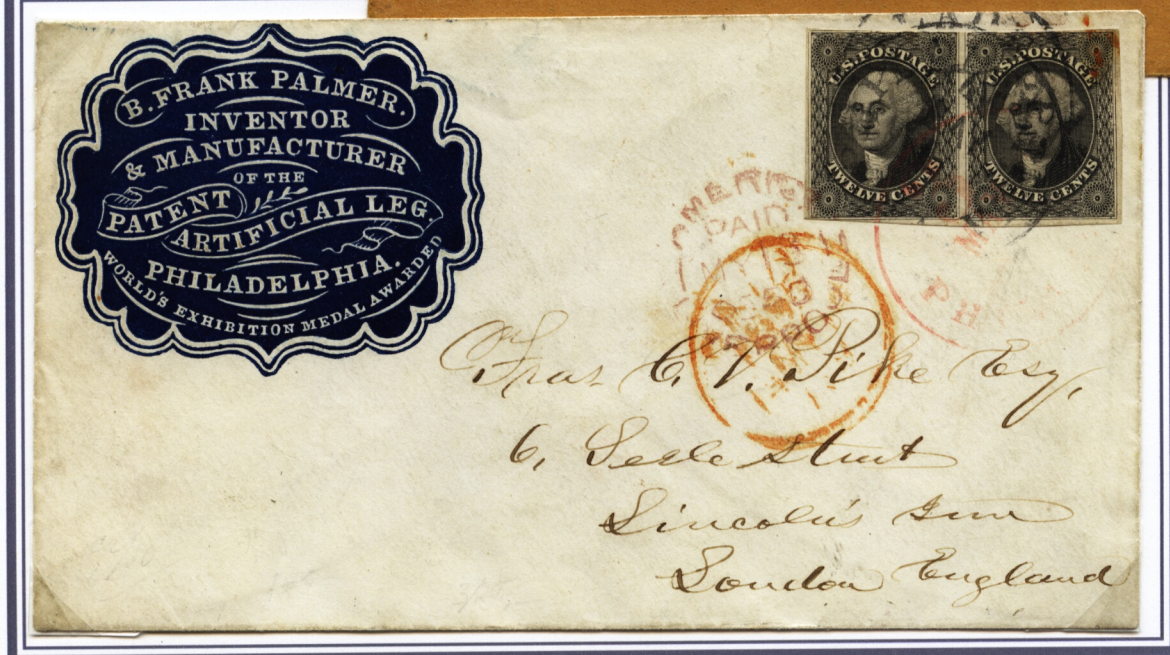 B. FRANK PALMER.
INVENTOR
& MANUFACTURER
OF THE
PATENT
ARTIFICIAL LEG,
PHILADELPHIA.
WORLD'S EXHIBITION MEDAL AWARDED
U.S. POSTAGE
TWELVE CENTS
U.S. POSTAGE
TWELVE CENTS
PAID
C. V. Pike Esq,
6, Serle Street
Lincoln's Inn
London England